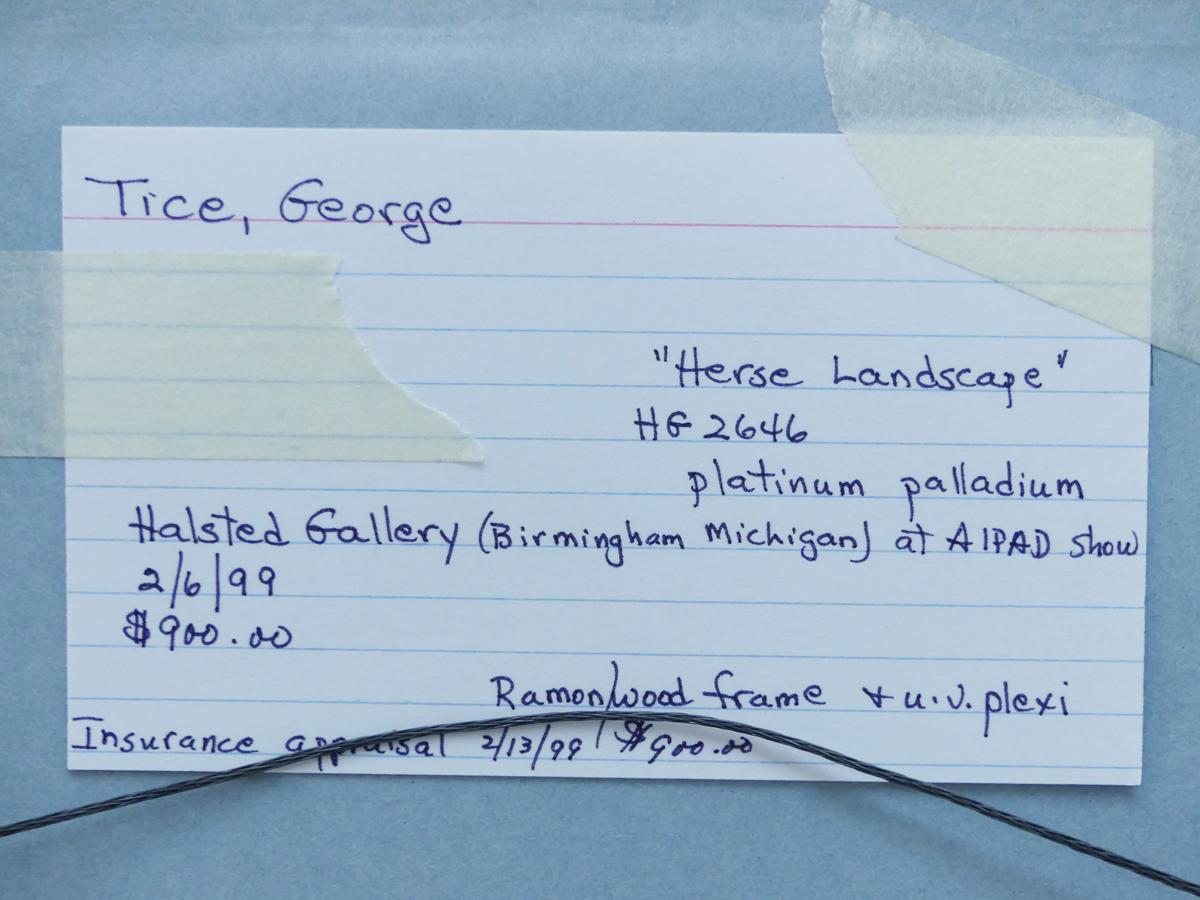 Tice, George
"Herse Landscape"
HG 2646
platinum palladium
Halsted Gallery (Birmingham Michigan) at AIPAD show
2/6/99
$900.00
Ramon/wood frame + u.v. plexi
Insurance appraisal 2/13/99 / $900.00